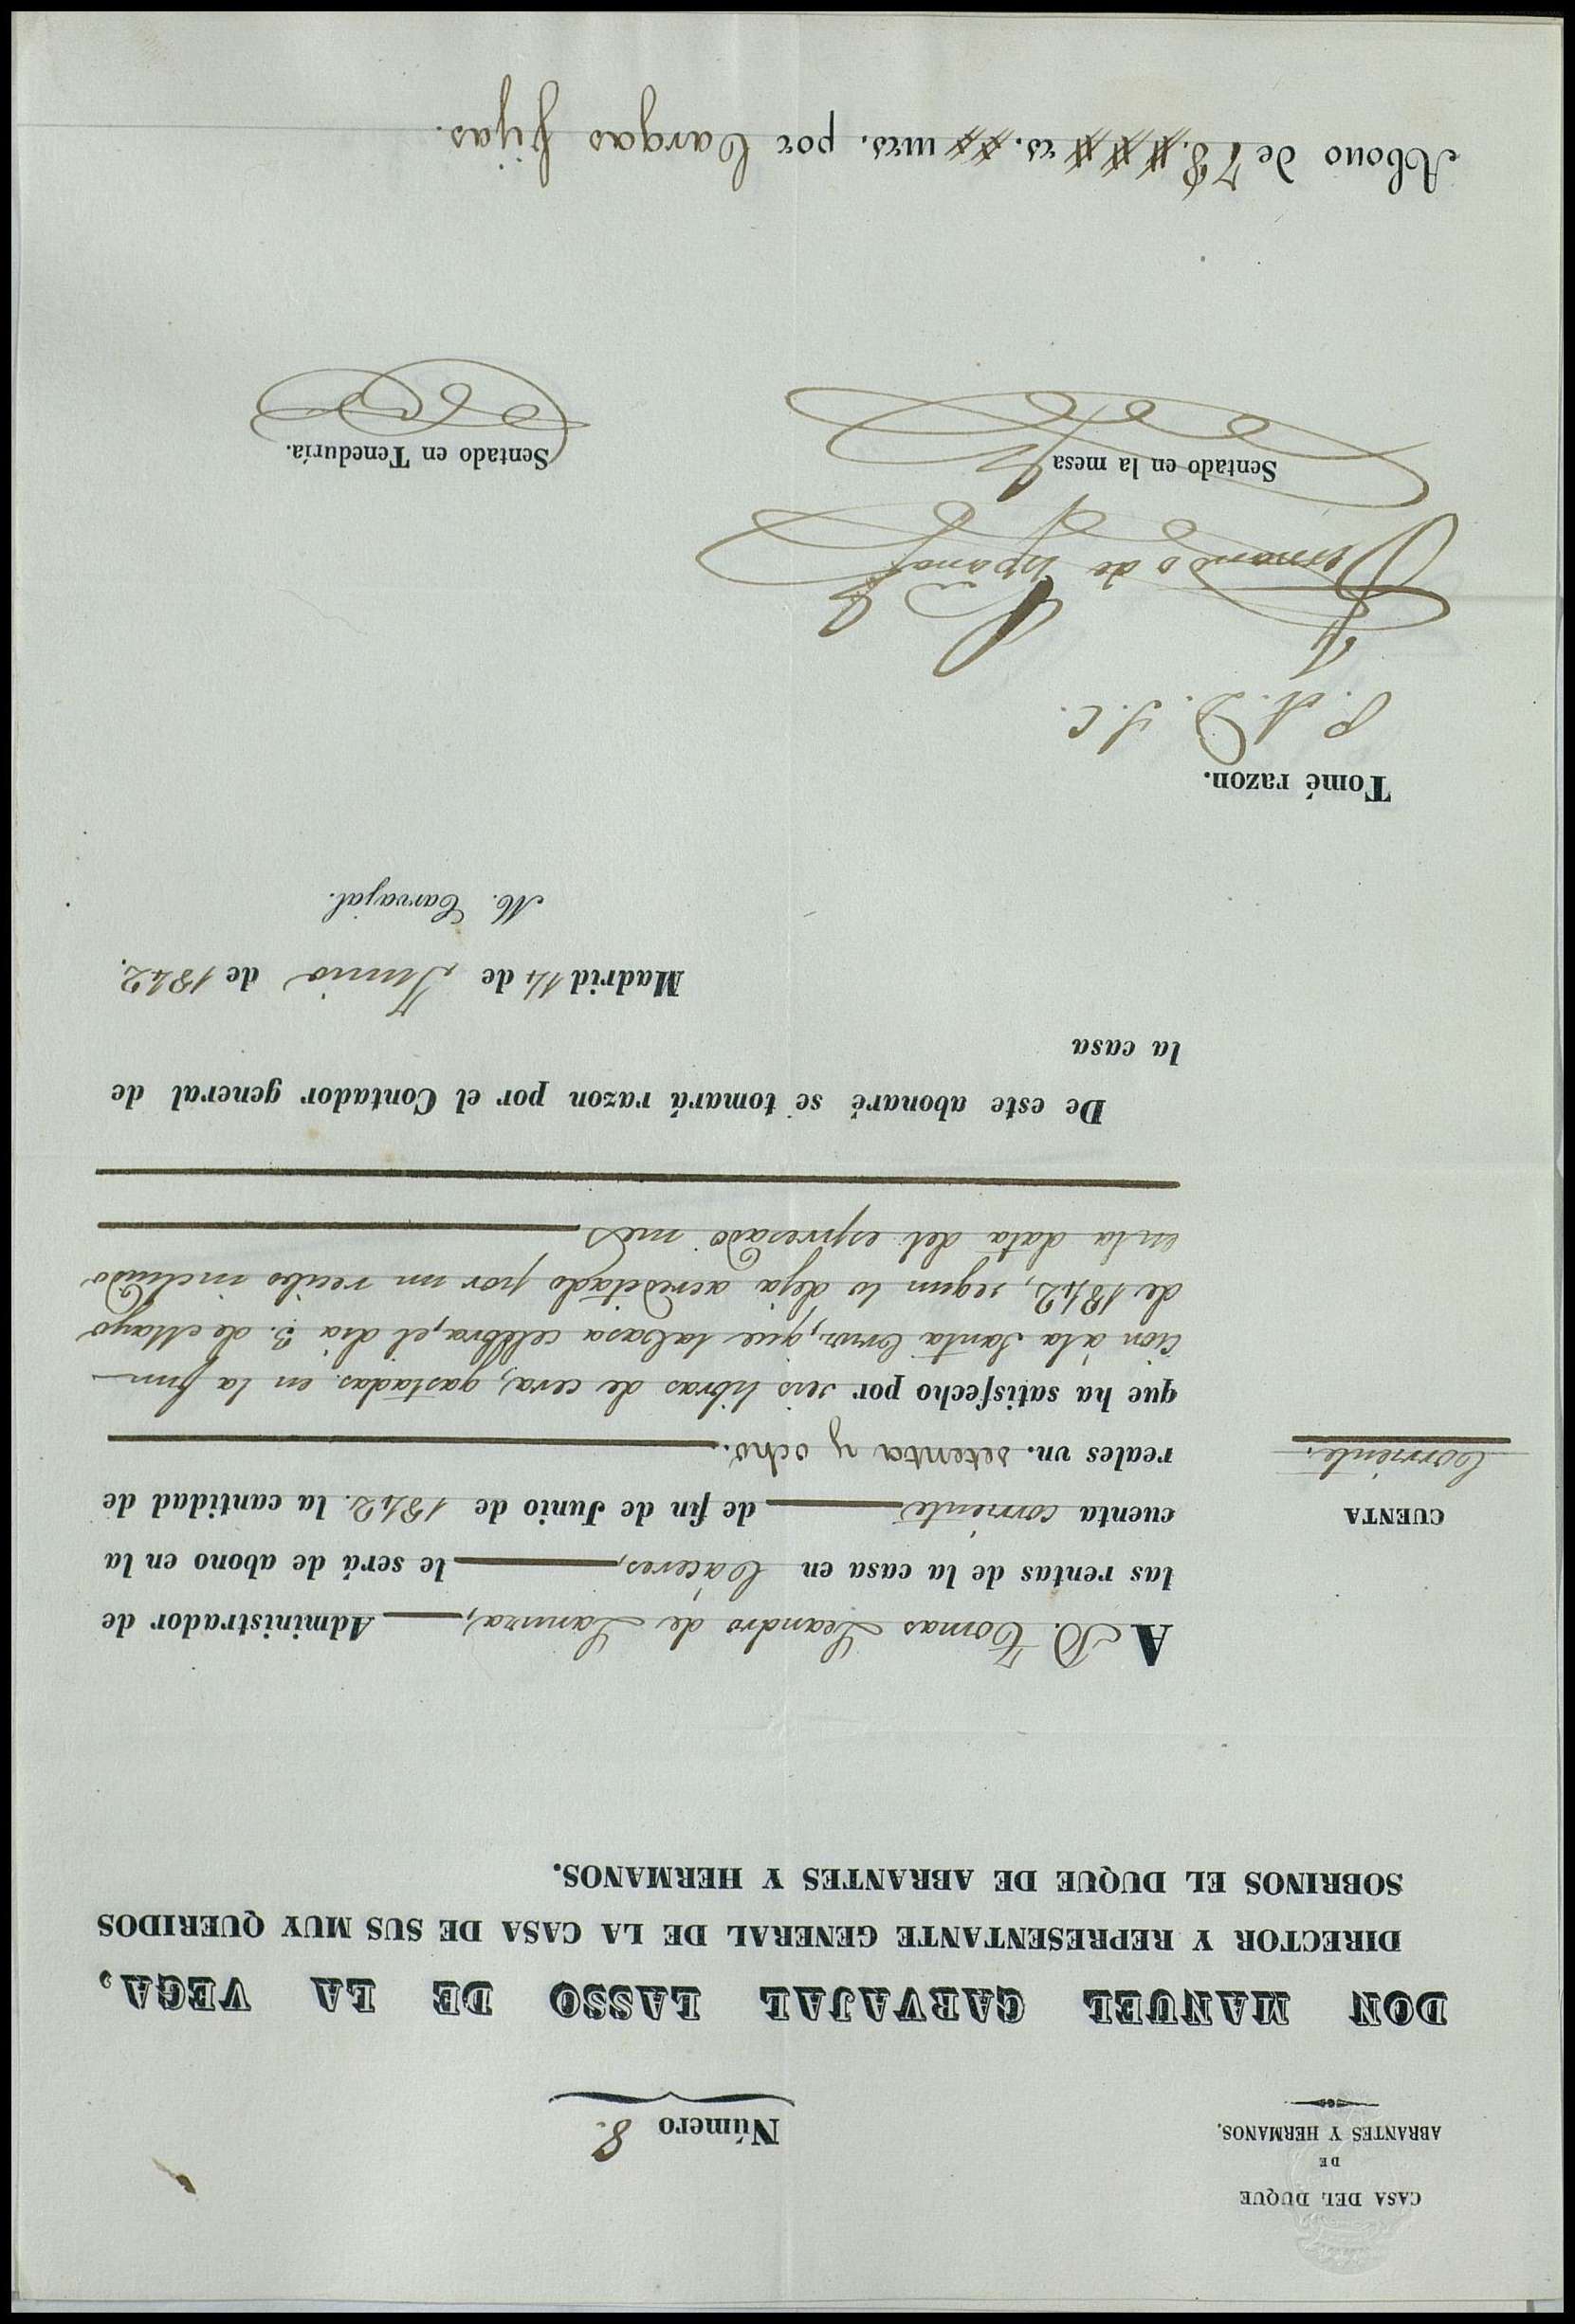 CASA DEL DUQUE
DE
ABRANTES Y HERMANOS.
Número 8.
DON MANUEL CARVAJAL LASSO DE LA VEGA,
DIRECTOR Y REPRESENTANTE GENERAL DE LA CASA DE SUS MUY QUERIDOS
SOBRINOS EL DUQUE DE ABRANTES Y HERMANOS.
A D. Tomas Leandro de Lamra, Administrador de
las rentas de la casa en Cáceres, le será de abono en la
CUENTA
Corriente.
cuenta corriente de fin de Junio de 1842. la cantidad de
reales vn. setenta y ocho.
que ha satisfecho por seis libras de cera, gastadas en la fun
cion á la Santa Cruz, que la Casa celebra, el dia 3. de Mayo
de 1842, segun lo deja acreditado por un recibo incluso
en la data del espresado mes
De este abonaré se tomará razon por el Contador general de
la casa
Madrid 14 de Junio de 1842.
M. Carvajal.
Tomé razon.
P. A. D. S. C.
Sentado en la mesa
Sentado en Teneduría.
Abono de 78. rs. mrs. por Cargas fijas.